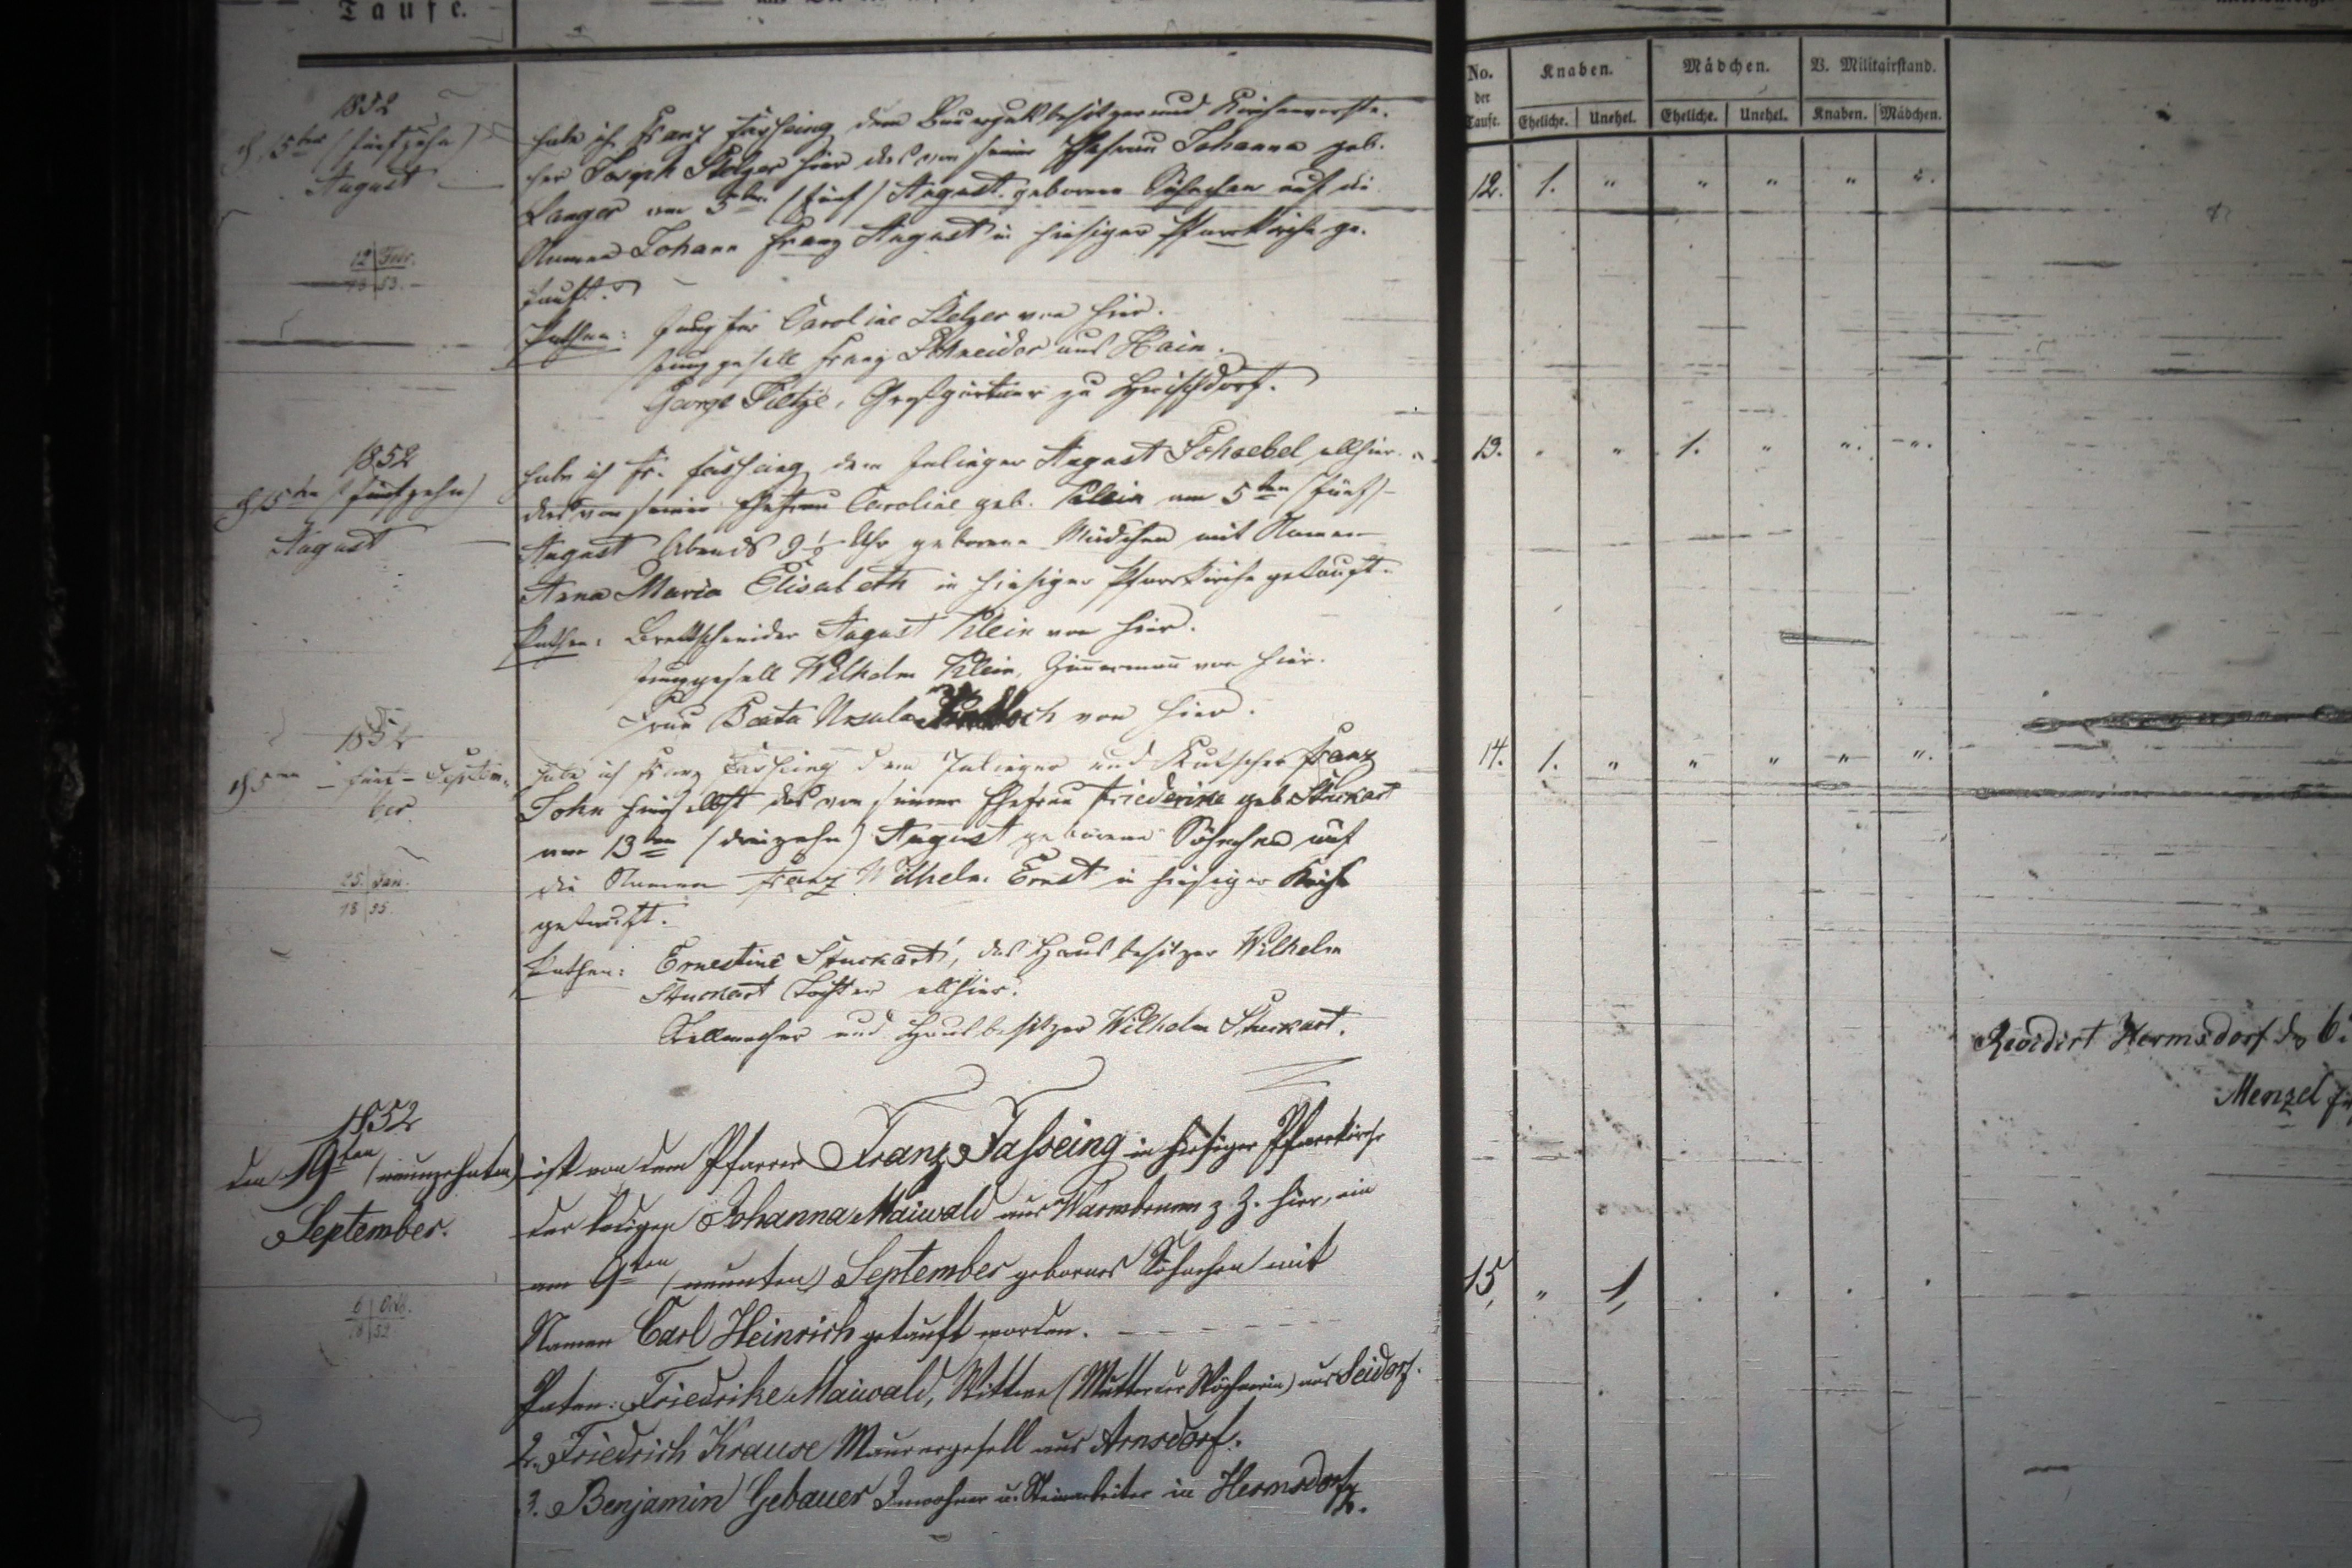 Taufe.
No. der Taufe.
Knaben.
Mädchen.
V. Militairstand.
Eheliche. Unehel. Eheliche. Unehel. Knaben. Mädchen.
1852
d. 15ten (fünfzehn)
August
habe ich Franz Fasseing dem Bauergutbesitzer und Kirchenvorste-
her Joseph Stelzer hier das von seiner Ehefrau Johanna geb.
Langer am 5ten (fünf) August geborene Söhnchen auf die
Namen Johann Franz August in hiesiger Pfarrkirche ge-
tauft.
Pathen: Jungfer Caroline Stelzer von hier.
Junggesell Franz Schneider aus Hain.
George Tietze, Großgärtner zu Herischdorf.
12. 1. " " " " ".
12 Febr.
18 53.
1852
d 15ten (fünfzehn)
August
habe ich Fr. Fasseing dem Inlieger August Schaebel allhier
das von seiner Ehefrau Caroline geb. Klein am 5ten (fünf)
August Abends 9½ Uhr geborene Mädchen mit Namen
Anna Maria Elisabeth in hiesiger Pfarrkirche getauft.
Pathen: Brettschneider August Klein von hier.
Junggesell Wilhelm Klein, Zimmermann von hier.
Frau Beata Ursula von hier.
13. " " 1. " ". ".
1852
d 5ten - fünf - Septem-
ber
habe ich Franz Fasseing dem Inlieger und Kutscher Franz
John hierselbst das von seiner Ehefrau Friederike geb. Stuckart
am 13ten (dreizehn) August geborene Söhnchen auf
die Namen Franz Wilhelm Ernst in hiesiger Kirche
getauft.
Pathen: Ernestine Stuckart, des Hausbesitzer Wilhelm
Stuckart Tochter allhier.
Stellmacher und Hausbesitzer Wilhelm Stuckart.
14. 1. " " " " ".
25. Jan.
18 95.
Revidirt Hermsdorf d 6.
Menzel
1852
den 19ten (neunzehnten)
September.
ist von dem Pfarrer Franz Fasseing in hiesiger Pfarrkirche
der ledigen Johanna Maiwald aus Warmbrunn z. Z. hier, ein
am 9ten (neunten) September gebornes Söhnchen mit
Namen Carl Heinrich getauft worden.
Paten: Friedrike Maiwald, Wittwe (Mutter der Wöchnerin) aus Seidorf.
2. Friedrich Krause Maurergesell aus Arnsdorf.
3. Benjamin Gebauer Inwohner u. Steinarbeiter in Hermsdorf
15, " 1,
6 Octb.
18 52